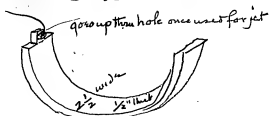 goes up thru hole once used for jet
2 1/2 wide
1/2" thick